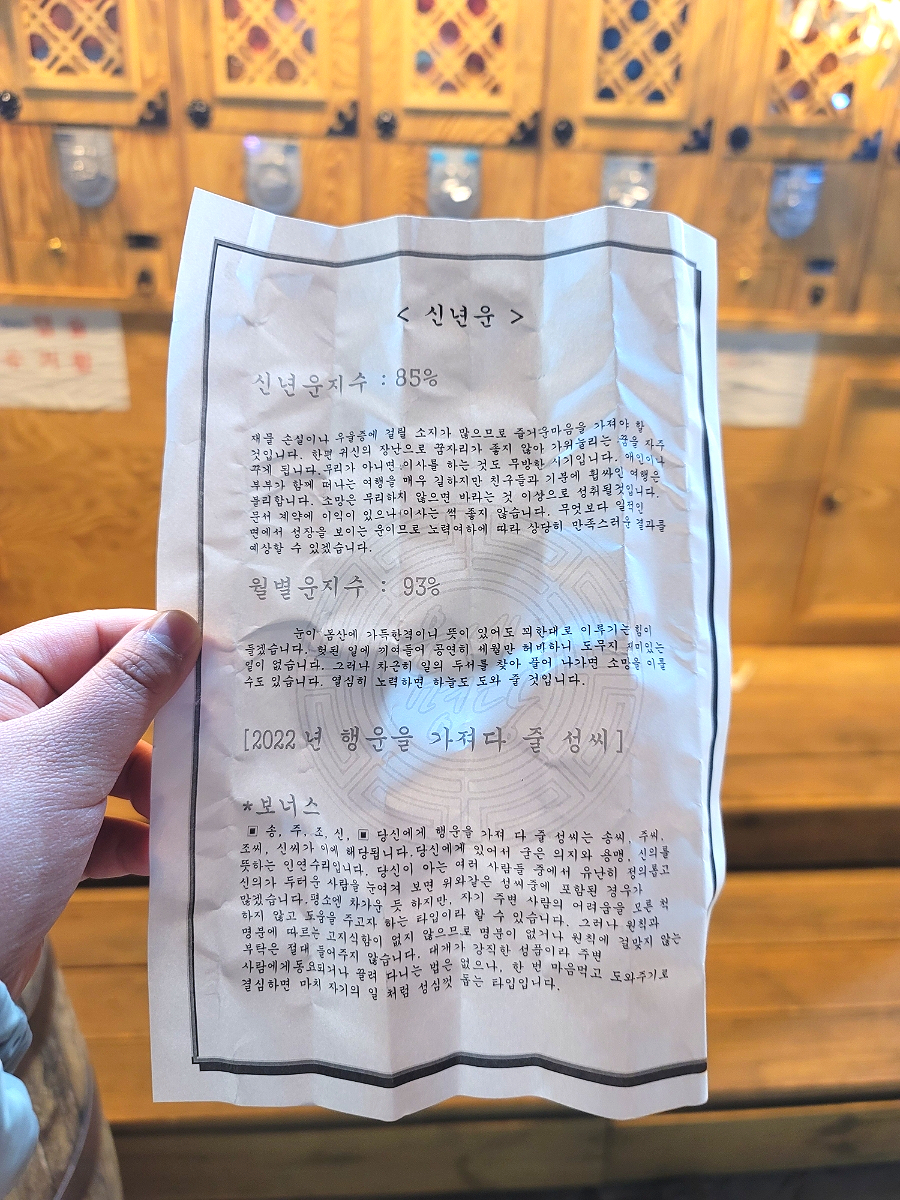 < 신년운 >
신년운지수 : 85%
재물 손실이나 우울증에 걸릴 소지가 많으므로 즐거운마음을 가져야 할
것입니다. 한편 귀신의 장난으로 꿈자리가 좋지 않아 가위눌리는 꿈을 자주
꾸게 됩니다.무리가 아니면 이사를 하는 것도 무방한 시기입니다. 애인이나
부부가 함께 떠나는 여행을 매우 길하지만 친구들과 기분에 휩싸인 여행은
불리합니다. 소망은 무리하지 않으면 바라는 것 이상으로 성취될것입니다.
문서 계약에 이익이 있으나 이사는 썩 좋지 않습니다. 무엇보다 일적인
면에서 성장을 보이는 운이므로 노력여하에 따라 상당히 만족스러운 결과를
예상할 수 있겠습니다.
월별운지수 : 93%
눈이 봄산에 가득한격이니 뜻이 있어도 꾀한대로 이루기는 힘이
들겠습니다. 헛된 일에 끼여들어 공연히 세월만 허비하니 도무지 재미있는
일이 없습니다. 그러나 차근히 일의 두서를 찾아 풀어 나가면 소망을 이룰
수도 있습니다. 열심히 노력하면 하늘도 도와 줄 것입니다.
[2022년 행운을 가져다 줄 성씨]
*보너스
▣ 송, 주, 조, 신, ▣ 당신에게 행운을 가져 다 줄 성씨는 송씨, 주씨,
조씨, 신씨가 이에 해당됩니다.당신에게 있어서 굳은 의지와 용맹, 신의를
뜻하는 인연수리입니다. 당신이 아는 여러 사람들 중에서 유난히 정의롭고
신의가 두터운 사람을 눈여겨 보면 위와같은 성씨중에 포함된 경우가
많겠습니다.평소엔 차가운 듯 하지만, 자기 주변 사람의 어려움을 모른 척
하지 않고 도움을 주고자 하는 타입이라 할 수 있습니다. 그러나 원칙과
명분에 따르는 고지식함이 없지 않으므로 명분이 없거나 원칙에 걸맞지 않는
부탁은 절대 들어주지 않습니다. 대개가 강직한 성품이라 주변
사람에게 동요되거나 끌려 다니는 법은 없으나, 한 번 마음먹고 도와주기로
결심하면 마치 자기의 일 처럼 성심껏 돕는 타입입니다.